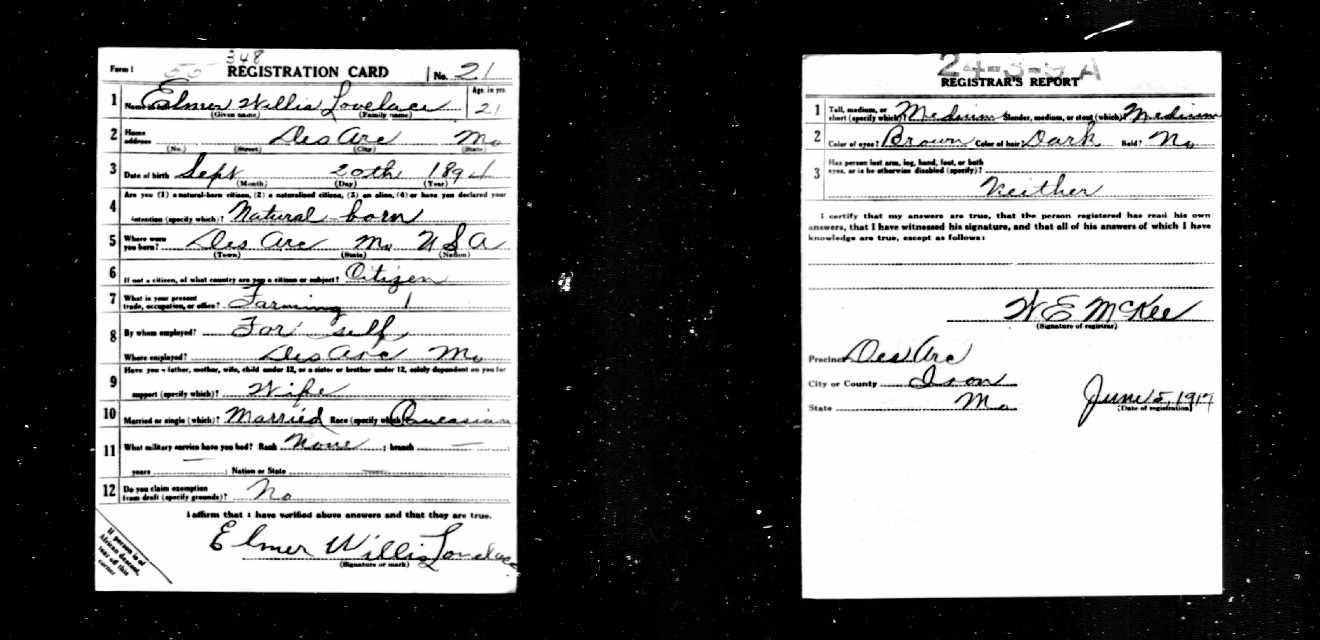 348
Form 1 55 REGISTRATION CARD No. 21
1 Name Elmer Willis Lovelace Age, in yrs. 21
(Given name) (Family name)
2 Home address Des Arc Mo
(No.) (Street) (City) (State)
3 Date of birth Sept 20th 1894
(Month) (Day) (Year)
Are you (1) a natural-born citizen, (2) a naturalized citizen, (3) an alien, (4) or have you declared your
4 intention (specify which)? Natural born
5 Where were you born? Des Arc Mo USA
(Town) (State) (Nation)
6 If not a citizen, of what country are you a citizen or subject? Citizen
7 What is your present trade, occupation, or office? Farming
8 By whom employed? For self
Where employed? Des Arc Mo
Have you a father, mother, wife, child under 12, or a sister or brother under 12, solely dependent on you for
9 support (specify which)? Wife
10 Married or single (which)? Married Race (specify which)? Caucasian
11 What military service have you had? Rank None ; branch —
years — ; Nation or State —
12 Do you claim exemption from draft (specify grounds)? No
I affirm that I have verified above answers and that they are true.
Elmer Willis Lovelace
(Signature or mark)
If person is of
African descent,
tear off this
corner
24-3-9 A
REGISTRAR'S REPORT
1 Tall, medium, or short (specify which)? Medium Slender, medium, or stout (which)? Medium
2 Color of eyes? Brown Color of hair? Dark Bald? No
3 Has person lost arm, leg, hand, foot, or both
eyes, or is he otherwise disabled (specify)?
Neither
I certify that my answers are true, that the person registered has read his own
answers, that I have witnessed his signature, and that all of his answers of which I have
knowledge are true, except as follows:
W E McKee
(Signature of registrar)
Precinct Des Arc
City or County Iron
State Mo
June 5, 1917
(Date of registration)